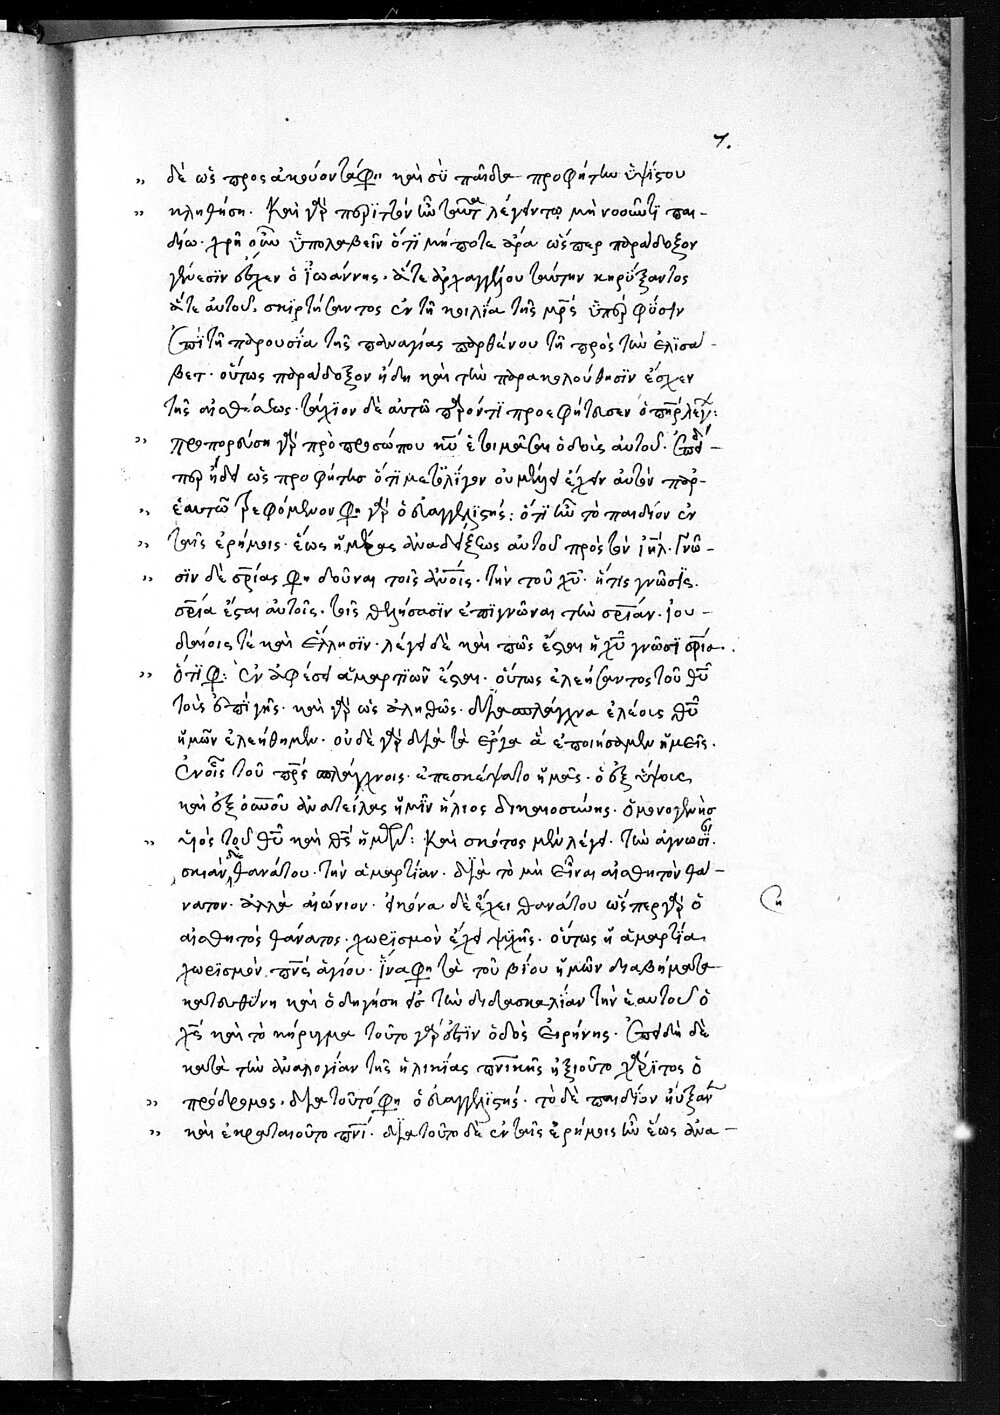 7.
δὲ ὡς προς ἀκούοντά φη· καὶ σὺ παιδίον προφήτης ὑψίστου
κληθήσῃ. Καὶ γὰρ περιττὸν ἦν ταῦτα λέγειν τῷ μὴ νοοῦντι παι-
δίῳ. χρὴ οὖν ὑπολαβεῖν ὅτι μήποτε ἄρα ὥσπερ παράδοξον
γένεσιν ἔσχεν ὁ ἰωάννης. ἅτε ἀρχαγγέλου ταύτην κηρύξαντος
ἅτε αὐτοῦ, σκιρτήσαντος ἐν τῇ κοιλίᾳ τῆς μρς ὑπὲρ φύσιν
ἐπὶ τῇ παρουσίᾳ τῆς παναγίας παρθένου τῇ πρὸς τὴν ἐλισά-
βετ. οὕτως παράδοξον ἤδη καὶ τὴν παρακολούθησιν ἔσχεν
τῆς αἰσθήσεως. τάχιον δὲ αὐτῷ παρόντι προεφήτευσεν ὁ πηρ λέγων:
προπορεύσῃ γὰρ πρὸ προσώπου κυ ἑτοιμάσαι ὁδοὺς αὐτοῦ. ἐπεὶ-
περ ᾔδει ὡς προφήτης ὅτι μετολίγον οὐ μέλλει ἔχειν αὐτὸν παρ-
ἑαυτῷ τρεφόμενον φη γὰρ ὁ εὐαγγελιστής: ὅτι ἦν τὸ παιδίον ἐν
ταῖς ἐρήμοις. ἕως ἡμέρας ἀναδείξεως αὐτοῦ πρὸς τὸν ιηλ. Γνῶ-
σιν δὲ σριας φη δοῦναι τοῖς ανοις. τὴν τοῦ χυ. ἥτις γνῶσις
σρια ἔσται αὐτοῖς. τοῖς θελήσασιν ἐπιγνῶναι τὴν σριαν. ἰου-
δαίοις τε καὶ ἕλλησιν. λέγει δὲ καὶ πῶς ἔσται ἡ χυ γνῶσι σρια.
ὅτι φη: ἐν ἀφέσει ἁμαρτιῶν ἔσται. οὕτως ἐλεήσαντος τοῦ θυ
τοὺς ἐπὶ γῆς. καὶ γὰρ ὡς ἀληθῶς. διὰ σπλάγχνα ἐλέοις θυ
ἡμῶν ἐλεήθημεν. οὐδὲ γὰρ διὰ τὰ ἔργα ἃ ἐποιήσαμεν ἡμεῖς.
ἐν οἷς τοῦ πρς σπλάγχνοις. ἐπεσκέψατο ἡμᾶς. ὁ ἐξ ὕψους
καὶ ἐξ οὐνοῦ ἀνατείλας ἡμῖν ἥλιος δικαιοσύνης. ὁ μονογενὴς
υἱός τοῦ θυ καὶ θς ἡμῶν: Καὶ σκότος μὲν λέγει. τὴν ἀγνωσί.
σκιὰν δὲ θανάτου. τὴν ἁμαρτίαν. διὰ τὸ μὴ εἶναι αἰσθητὸν θά-
νατον. ἀλλὰ αἰώνιον. εἰκόνα δὲ ἔχει θανάτου ὥσπερ γὰρ ὁ
αἰσθητὸς θάνατος. χωρισμὸν ἔχει ψυχῆς. οὕτως ἡ ἁμαρτία
χωρισμὸν πνς ἁγίου. ἵνα φη τὰ τοῦ βίου ἡμῶν διαβήματα
κατευθύνῃ καὶ ὁδηγήσῃ εἰς τὴν διδασκαλίαν τὴν ἑαυτοῦ ὁ
χς καὶ τὸ κήρυγμα τοῦτο γάρ ἐστιν ὁδὸς εἰρήνης. ἐπειδὴ δὲ
κατὰ τὴν ἀναλογίαν τῆς ἡλικίας πνικῆς ἠξιοῦτο χάριτος ὁ
πρόδρομος, διὰ τοῦτό φη ὁ εὐαγγελιστής. τὸ δὲ παιδίον ηὔξαν
καὶ ἐκραταιοῦτο πνι. διὰ τοῦτο δὲ ἐν ταῖς ἐρήμοις ἦν ἕως ἀνα-